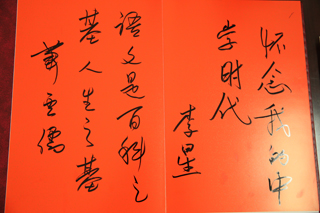 怀念我的中
学时代
李星
语文是百科之
基人生之基
萧云儒